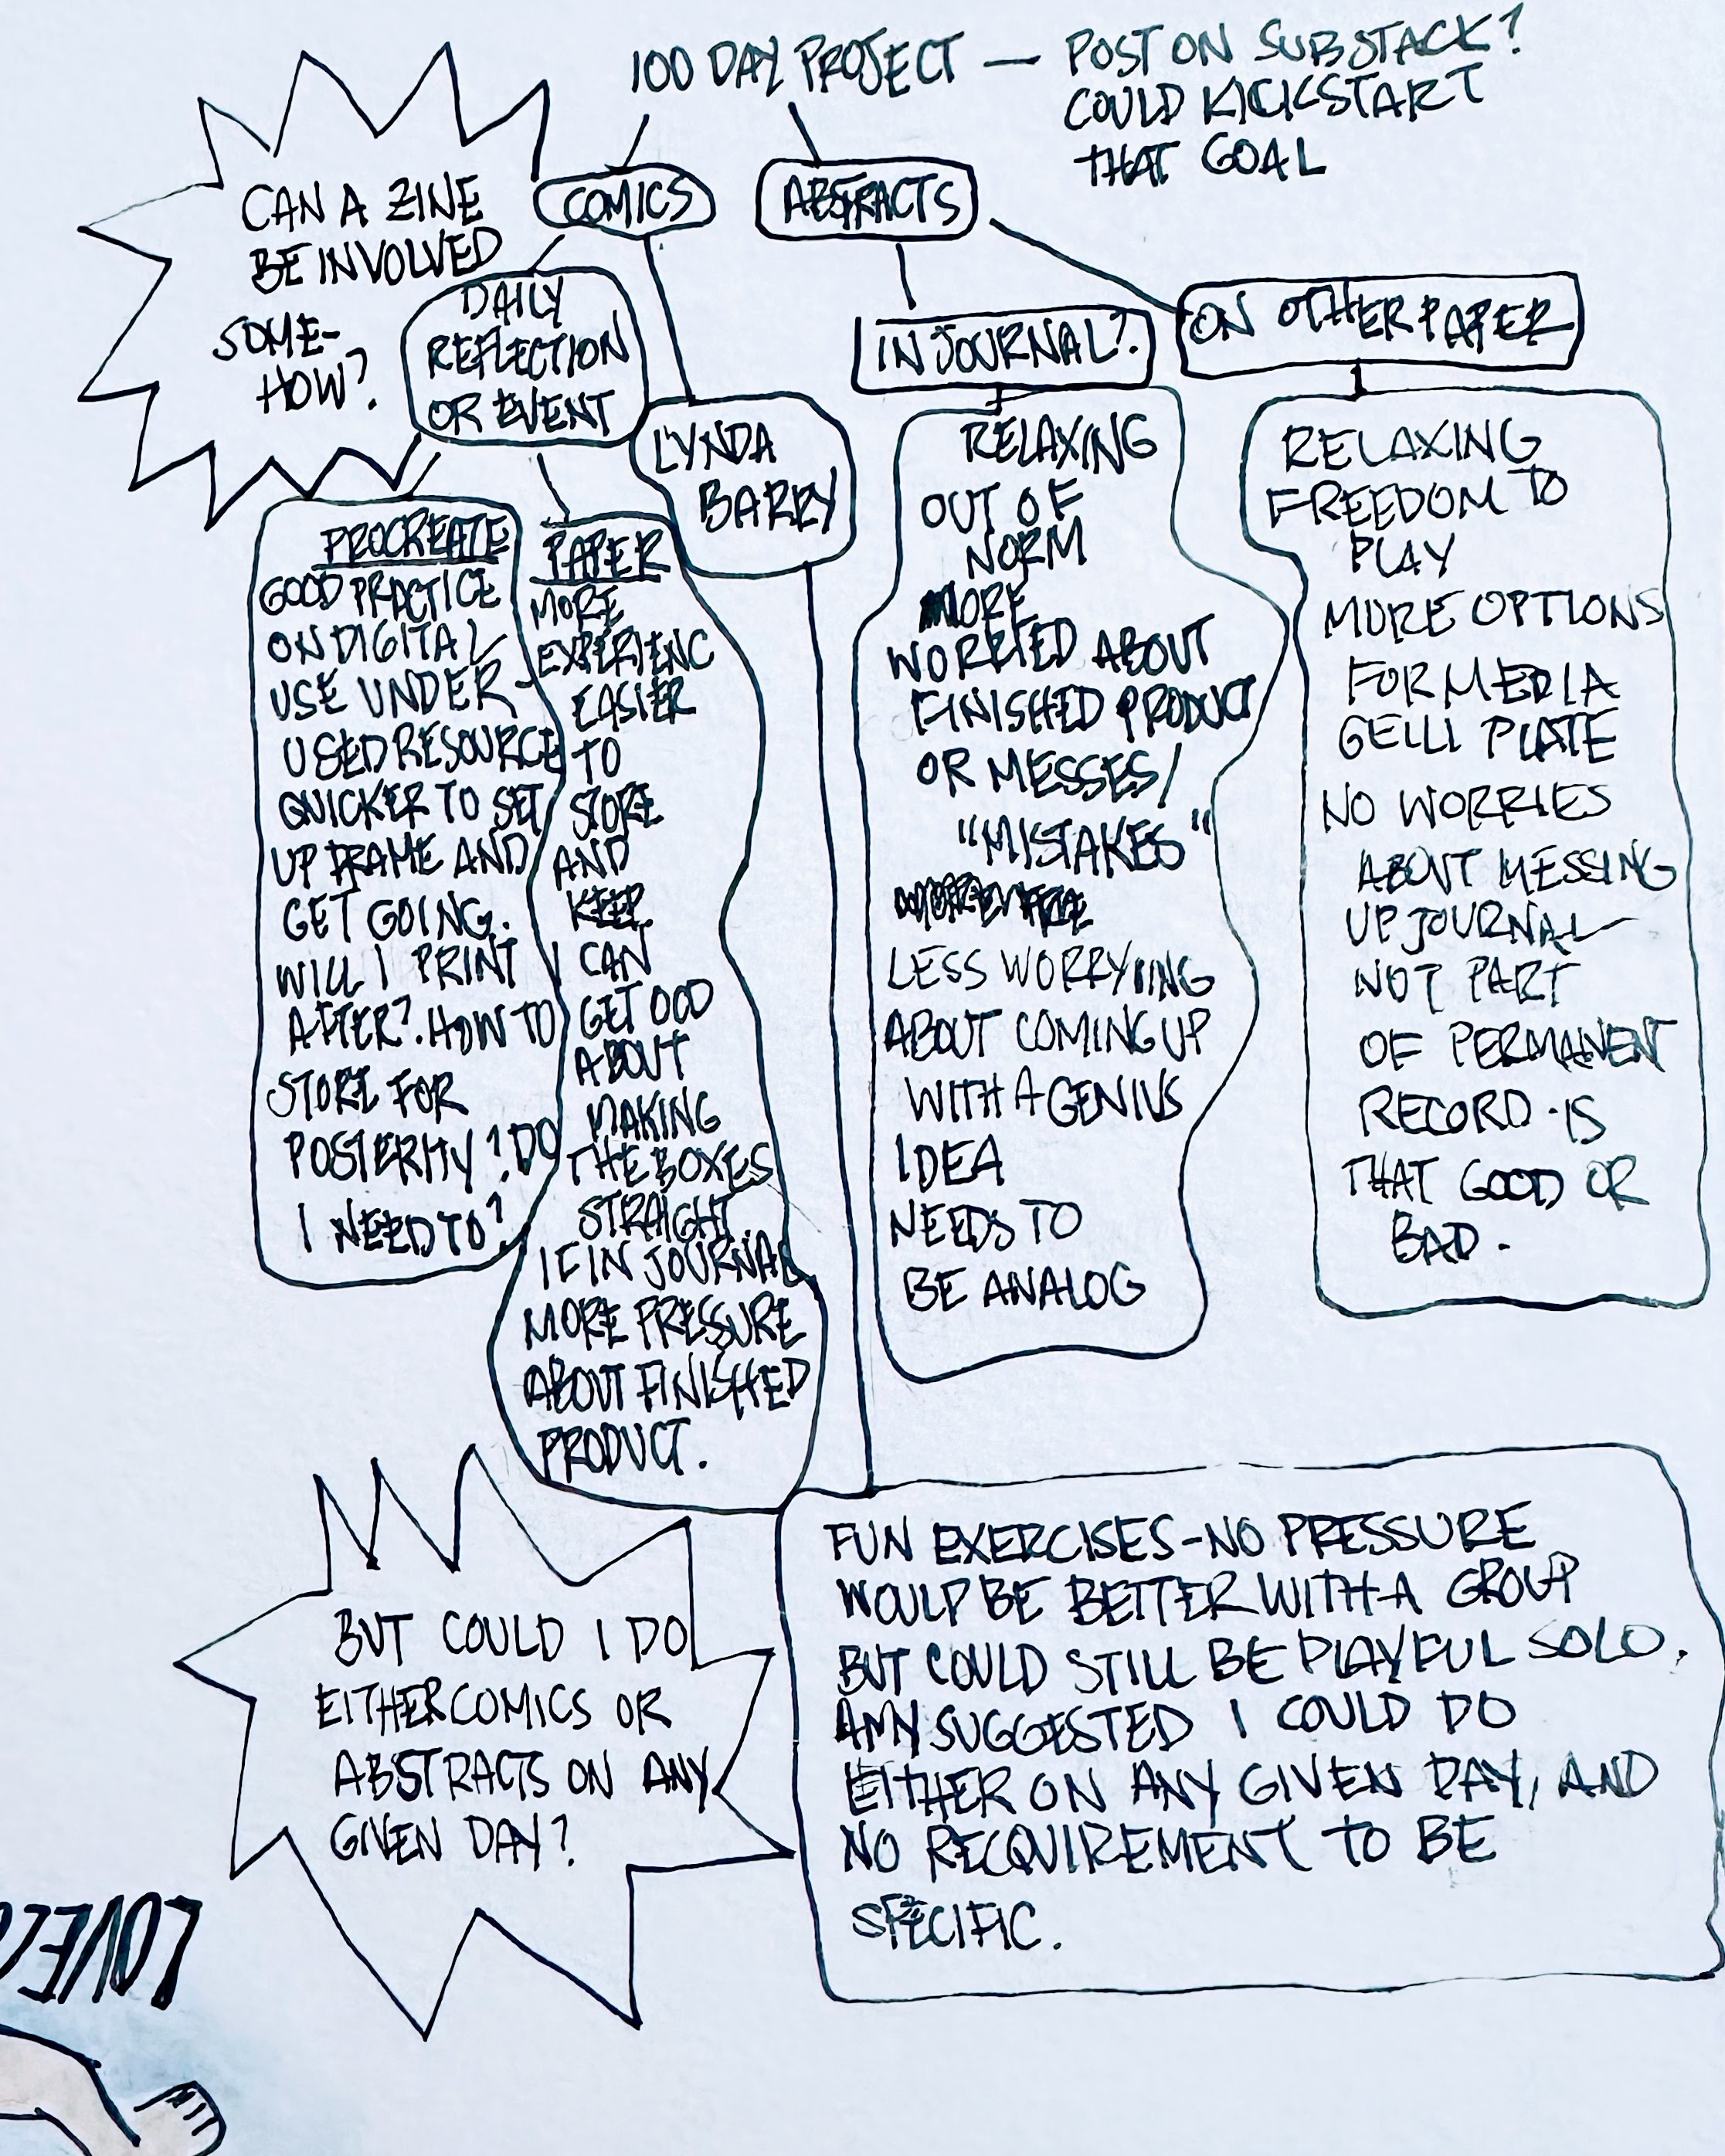 100 DAY PROJECT — POST ON SUBSTACK?
COULD KICKSTART
THAT GOAL
CAN A ZINE
BE INVOLVED
SOME-
HOW?
COMICS
ABSTRACTS
DAILY
REFLECTION
OR EVENT
LYNDA
BARRY
IN JOURNAL?
ON OTHER PAPER
PROCREATE
GOOD PRACTICE
ON DIGITAL
USE UNDER-
USED RESOURCE
QUICKER TO SET
UP FRAME AND
GET GOING.
WILL I PRINT
AFTER? HOW TO
STORE FOR
POSTERITY? DO
I NEED TO?
PAPER
MORE
EXPERIENC
EASIER
TO
STORE
AND
KEEP
CAN
GET OCD
ABOUT
MAKING
THE BOXES
STRAIGHT.
IF IN JOURNAL
MORE PRESSURE
ABOUT FINISHED
PRODUCT.
RELAXING
OUT OF
NORM
MORE
WORRIED ABOUT
FINISHED PRODUCT
OR MESSES/
"MISTAKES"
LESS WORRYIING
ABOUT COMING UP
WITH A GENIUS
IDEA
NEEDS TO
BE ANALOG
RELAXING
FREEDOM TO
PLAY
MORE OPTIONS
FOR MEDIA
GELLI PLATE
NO WORRIES
ABOUT MESSING
UP JOURNAL
NOT PART
OF PERMANENT
RECORD · IS
THAT GOOD OR
BAD.
BUT COULD I DO
EITHER COMICS OR
ABSTRACTS ON ANY
GIVEN DAY?
FUN EXERCISES-NO PRESSURE
WOULD BE BETTER WITH A GROUP
BUT COULD STILL BE PLAYFUL SOLO.
AMY SUGGESTED I COULD DO
EITHER ON ANY GIVEN DAY, AND
NO RECQUIREMENT TO BE
SPECIFIC.